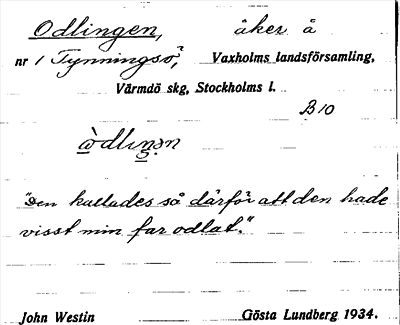 Odlingen, åker å
nr 1 Tynningsö, Vaxholms landsförsamling,
Värmdö skg, Stockholms l.
B10
òdlıŋən
"Den kallades så därför att den hade
visst min far odlat."
John Westin Gösta Lundberg 1934.